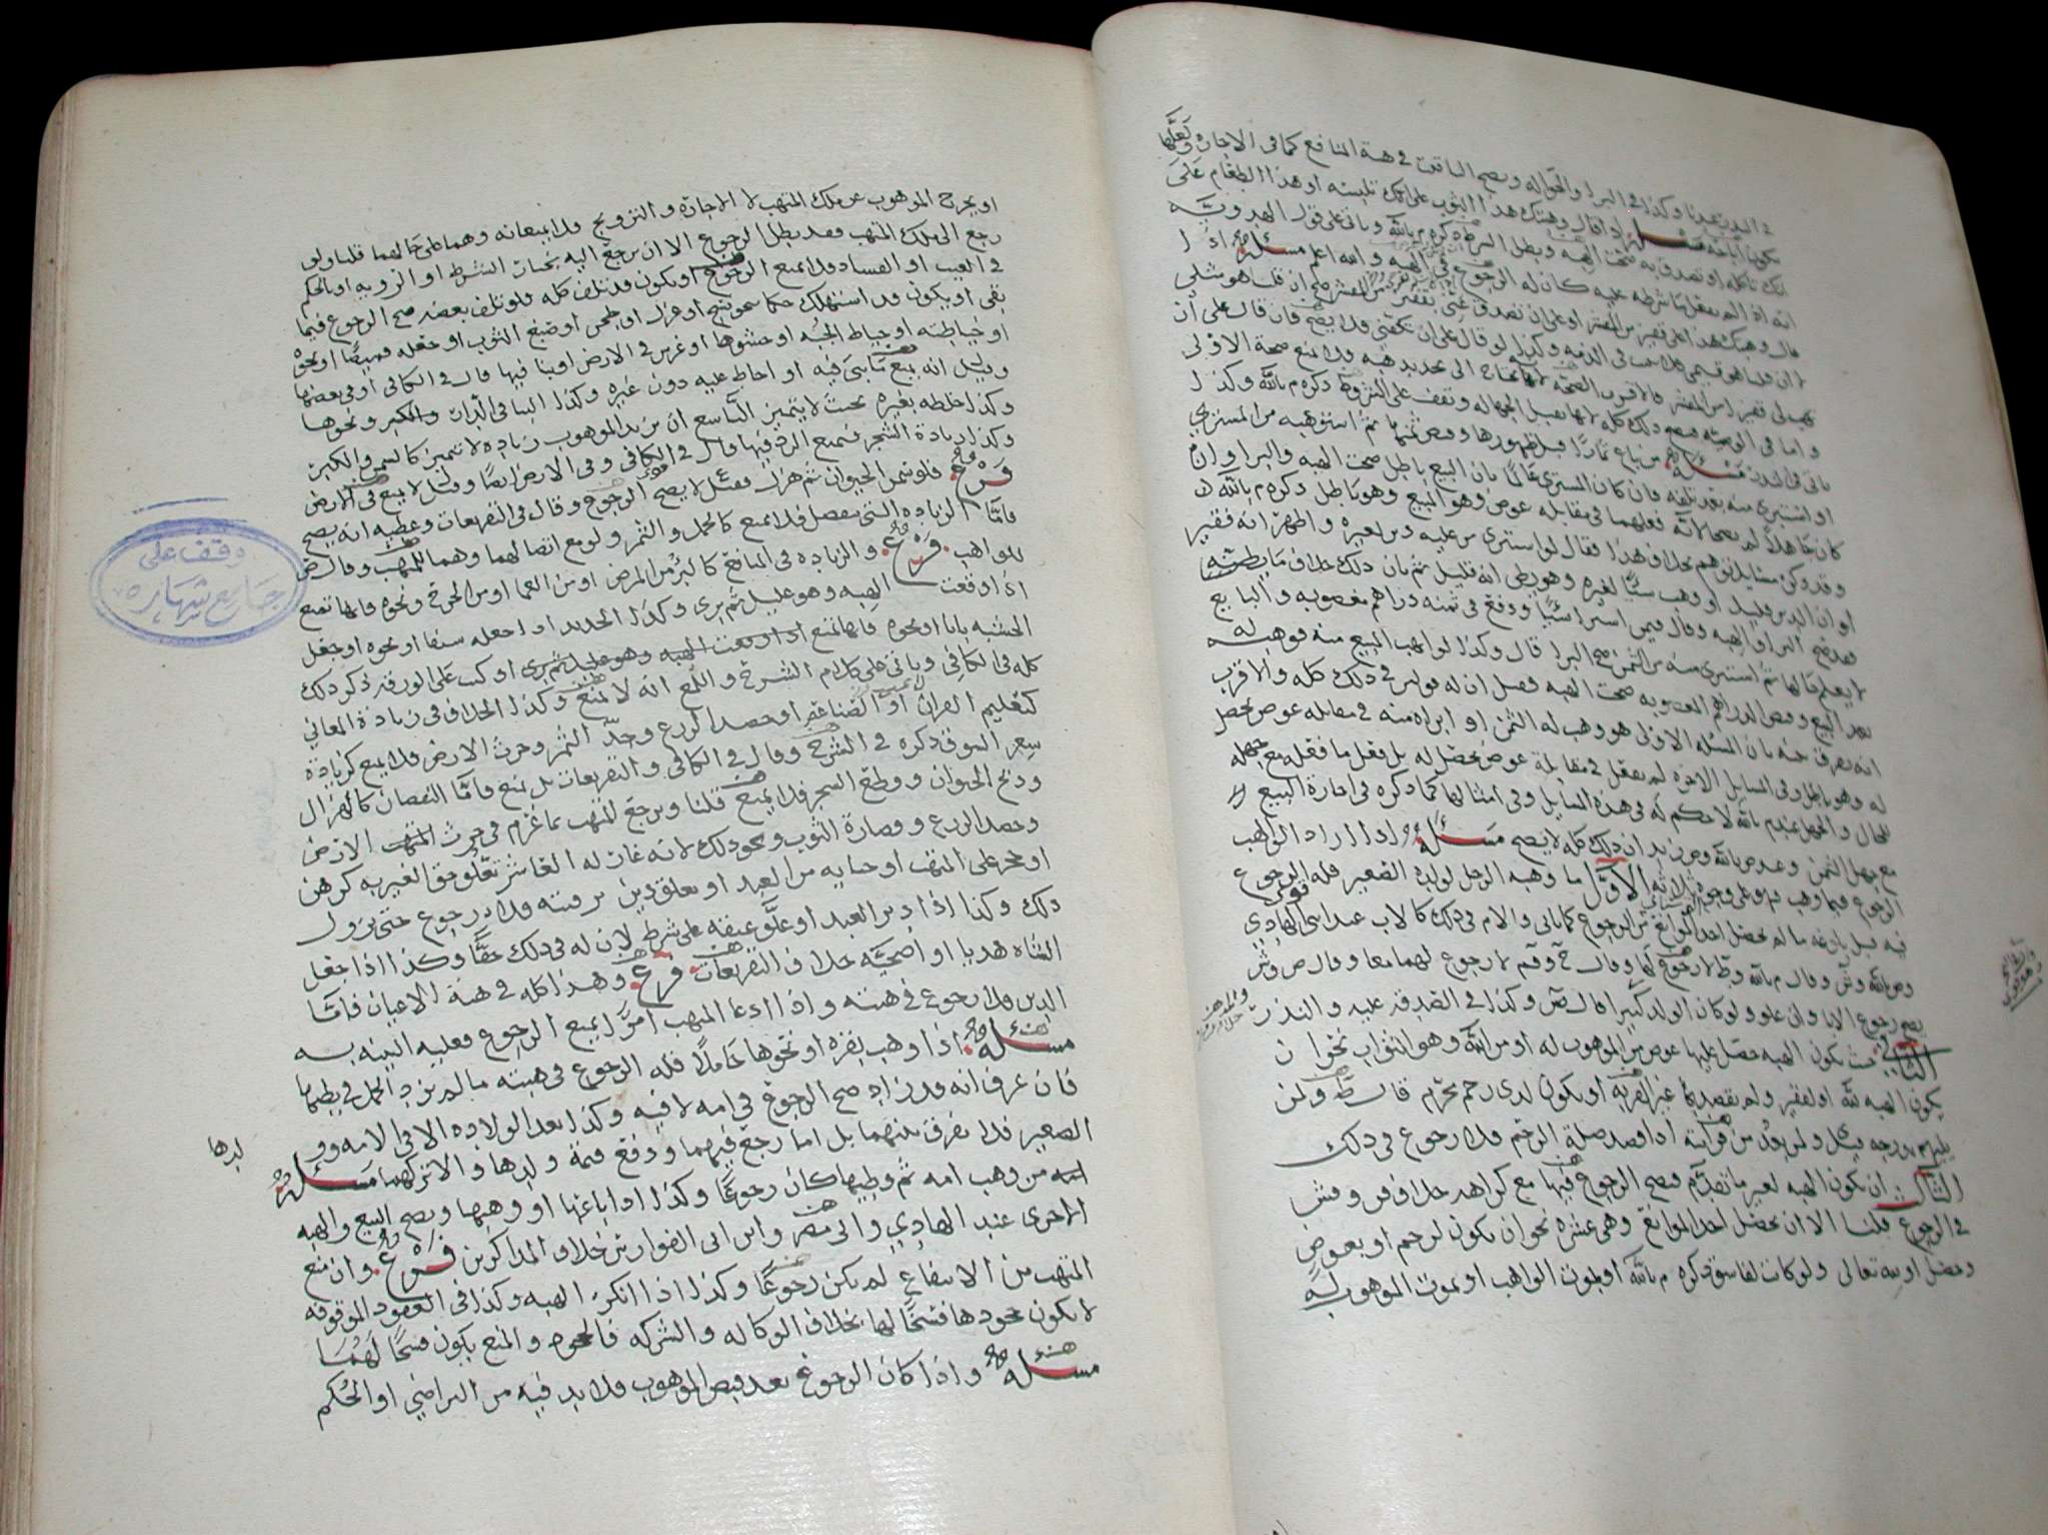 في الدين تعدينا وكذا في البرا والحواله ويصح التاقيت في هبة المنافع كما في الاجاره ولعلها
تكون اباحه مسئلة اذا قال وهبتك هذا الثوب على انك تلبسه او هذا الطعام على
انك تاكله او تصدق به صحت الهبه وبطل الشرط ذكره م بالله وياتي على قول الهدويه
انه اذا لم يفعل ما شرطه عليه كان له الرجوع في الهبه والله اعلم مسئلة اذا
قال وهبتك هذا على قفيز من البر او على ان تصدق عني بقفيز من البر صح ان قلنا هو مثلي
لا ان قلنا هو قيمي فلا يثبت في الذمه وكذا لو قال على ان تكفني فلا يصح فان قال على ان
واما في الوصيه فيصح ذلك كله لانها تقبل الجهاله وتقف على الشروط ذكره م بالله وكذا
ياتي في النذر مسئلة من باع ثمارا قبل ظهورها وقبض ثمنها ثم استوهبه من المشتري
او استبرى منه بعد تلفه فان كان المشتري عالما بان البيع باطل صحت الهبه والبرا وان
كان جاهلا لم يصحا لانه فعلهما في مقابله عوض وهو المبيع وهو باطل ذكره م بالله
وقد ذكر مسايل توهم بخلاف هذا فقال لو استبرى من عليه دين لغيره واظهر انه فقير
او ان الدين قليل او وهب شيا لغيره وهو يظن انه قليل ثم بان ذلك خلاف ما يظنه
فقد صح البرا والهبه وقال فيمن اشترا شيا ودفع في ثمنه دراهم مغصوبه والبايع
لا يعلم قال ثم استبرى منه من الثمن صح البرا قال وكذا لو اتهب المبيع منه فوهبه له
بعد البيع وقبض الدراهم المغصوبه صحت الهبه فقيل ان له قولين في ذلك كله والاقرب
انه يفرق بينه بان المسئله الاولى هو وهب له الثمن او ابراه منه في مقابله عوض يحصل
له وهو باطل وفي المسايل الاخره لم يفعل في مقابلة عوض يحصل له بل فعل ما فعله مع جهله
للحال والجهل عند م بالله لا حكم له في هذه المسايل وفي امثالها كما ذكره في اجازة البيع
مع جهل الثمن وعند ص بالله وص زيد ان ذلك كله لا يصح مسئلة اذا اراد الواهب
الرجوع فيما وهب فهو على وجوه ثلاثه الاول ما وهبه الرجل لولده الصغير فله الرجوع
فيه قبل بلوغه ما لم يحصل احد الموانع من الرجوع كما ياتي والام في ذلك كالاب عند اسي الهادي
وص بالله وش وقال م بالله وط لا رجوع لها وقال ح وقم لا رجوع لهما معا وقال ص وش
يصح رجوع الابا وان علو ولو كان الولد كبيرا قال ص وكذا في الصدقه عليه والنذر
الثاني حيث يكون الهبه حصل عليها عوض من الموهوب له او من الله وهو الثواب نحو ان
يكون الهبه لله او لفقير ولم يقصد بها غير القربه او يكون لذي رحم محرم قال ط ولمن
يليهم بدرجه قيل ولمن بعد من قرابته اذا قصد صلة الرحم فلا رجوع في ذلك
الثالث ان يكون الهبه لغير ما تقدم فيصح الرجوع فيها مع كراهه خلاف ن وش
في الرجوع قلنا الا ان يحصل احد الموانع وهي عشره نحو ان يكون لرحم او بعوض
وحصل او لله تعالى ولو كانت لفاسق ذكره م بالله او بموت الواهب او بموت الموهوب له
او يخرج الموهوب عن ملك المتهب لا الاجازه والتزويج فلا يمنعانه وهما على حالهما قلنا ولو
رجع الى ملك المتهب فقد بطل الرجوع الا ان يرجع اليه بخيار الشرط او الرويه او بالحكم
في العيب او الفساد فلا يمنع الرجوع او يكون قد تلف كله فلو تلف بعضه صح الرجوع فيما
بقي او يكون قد استهلك حكما نحو نسج او غزل او طحن او صبغ الثوب او جعله قميصا او نحوه
او خياطته او خياط الجبه او حشوها او غرس في الارض او بنا فيها قال في الكافي او في بعضها
وقيل انه يمنع ما بني فيه او احاط عليه دون غيره وكذا البنا في الدار
وكذا خلطه بغيره بحيث لا يتميز التاسع ان يزيد الموهوب زياده لا تتميز كالسمن والكبر ونحوها
وكذا زيادة الشجر فيمنع الرجوع فيها قال في الكافي وفي الارض ايضا وقيل لا يمنع في الارض
فرع فلو سمن الحيوان ثم هزل فقيل لا يصح الرجوع وقال في التفريعات وعطيه انه يصح
فاما الزياده التي تنفصل فلا تمنع كالحمل والثمر ولو مع اتصالهما وهما للمتهب وقال ص
للواهب فرع والزياده في المنافع كالبرؤ من المرض او من العما او من الجرح ونحوه فانها تمنع
اذا وقعت الهبه وهو عليل ثم بري وكذا الحديد اذا جعله سيفا او نحوه او جعل
الخشبه بابا او نحوه فانها تمنع اذا وقعت الهبه وهو عليل ثم بري او كتب على الورقه ذكر ذلك
كله في الكافي وياتي على كلام الشرح واللمع انه لا تمنع وكذا الخلاف في زيادة المعاني
كتعليم القران او الصناعه او حصد الزرع وجد الثمر وحرث الارض فلا يمنع كزيادة
سعر السوق ذكره في الشرح وقال في الكافي والتفريعات بل تمنع فاما النقصان كالهزال
وذبح الحيوان وقطع الشجر فلا يمنع قلنا ويرجع المتهب بما غرم في حرث الارض
وحصد الزرع وقصارة الثوب ونحو ذلك لانه غار له العاشر تعلق حق الغير به كرهن
او حجر على المتهب او جنايه من العبد او تعلق دين برقبته فلا رجوع حتى يزول
ذلك وكذا اذا دبر العبد او علق عتقه على شرط لان له في ذلك حقا وكذا اذا جعل
الشاه هديا او اضحيه خلاف التفريعات فرع وهذا كله في هبة الاعيان فاما
الدين فلا رجوع في هبته واذا ادعا المتهب امرا يمنع الرجوع فعليه البينه به
مسئلة اذا وهب بقره او نحوها حاملا فله الرجوع في هبته ما لم يزد الحمل في بطنها
فان عرف انه قد زاد صح الرجوع في امه لا فيه وكذا بعد الولاده الا في الامه وو
لدها
الصغير فلا يفرق بينهما بل اما رجع فيهما ودفع قيمة ولدها والا تركهما مسئلة
من وهب امه ثم وطيها كان رجوعا وكذا اذا باعها او وهبها ويصح البيع والهبه
الاخرى عند الهادي وابي مضر وابن ابي الفوارس خلاف المذاكرين فرع وان منع
المتهب من الانتفاع لم يكن رجوعا وكذا اذا انكر الهبه وكذا في العقود الموقوفه
لا يكون جحودها فسخا لها بخلاف الوكاله والشركه فالجحود والمنع يكون فسخا لهما
مسئلة واذا كان الرجوع بعد قبض الموهوب فلا بد فيه من التراضي او الحكم
وقف على
جامع شهاره